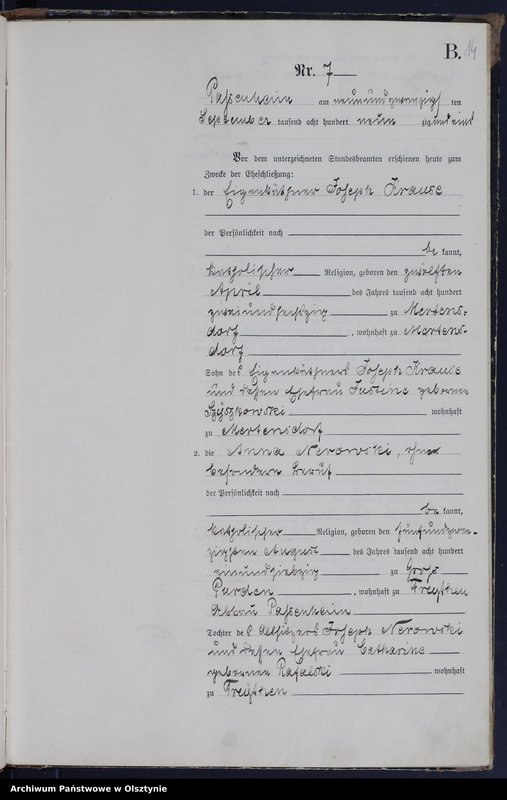 B. 14
Nr. 7
Passenheim am neunundzwanzigsten
September tausend acht hundert neunzig und
Vor dem unterzeichneten Standesbeamten erschienen heute zum
Zwecke der Eheschließung:
1. der Eigenkäthner Joseph Krause
der Persönlichkeit nach
bekannt,
katholischer Religion, geboren den zwölften
April des Jahres tausend acht hundert
zweiundsechszig zu Mertens-
dorf, wohnhaft zu Mertens-
dorf
Sohn des Eigenkäthners Joseph Krause
und dessen Ehefrau Justine geborenen
wohnhaft
zu Mertensdorf
2. die Anna Nerowski, ohne
besondern Beruf
der Persönlichkeit nach
bekannt,
katholischer Religion, geboren den fünfundzwan-
zigsten August des Jahres tausend acht hundert
zu Groß
Purden, wohnhaft zu
Abbau Passenheim
Tochter des Altsitzers Joseph Nerowski
und dessen Ehefrau Catharine
geborenen Rafalski wohnhaft
zu
Archiwum Państwowe w Olsztynie